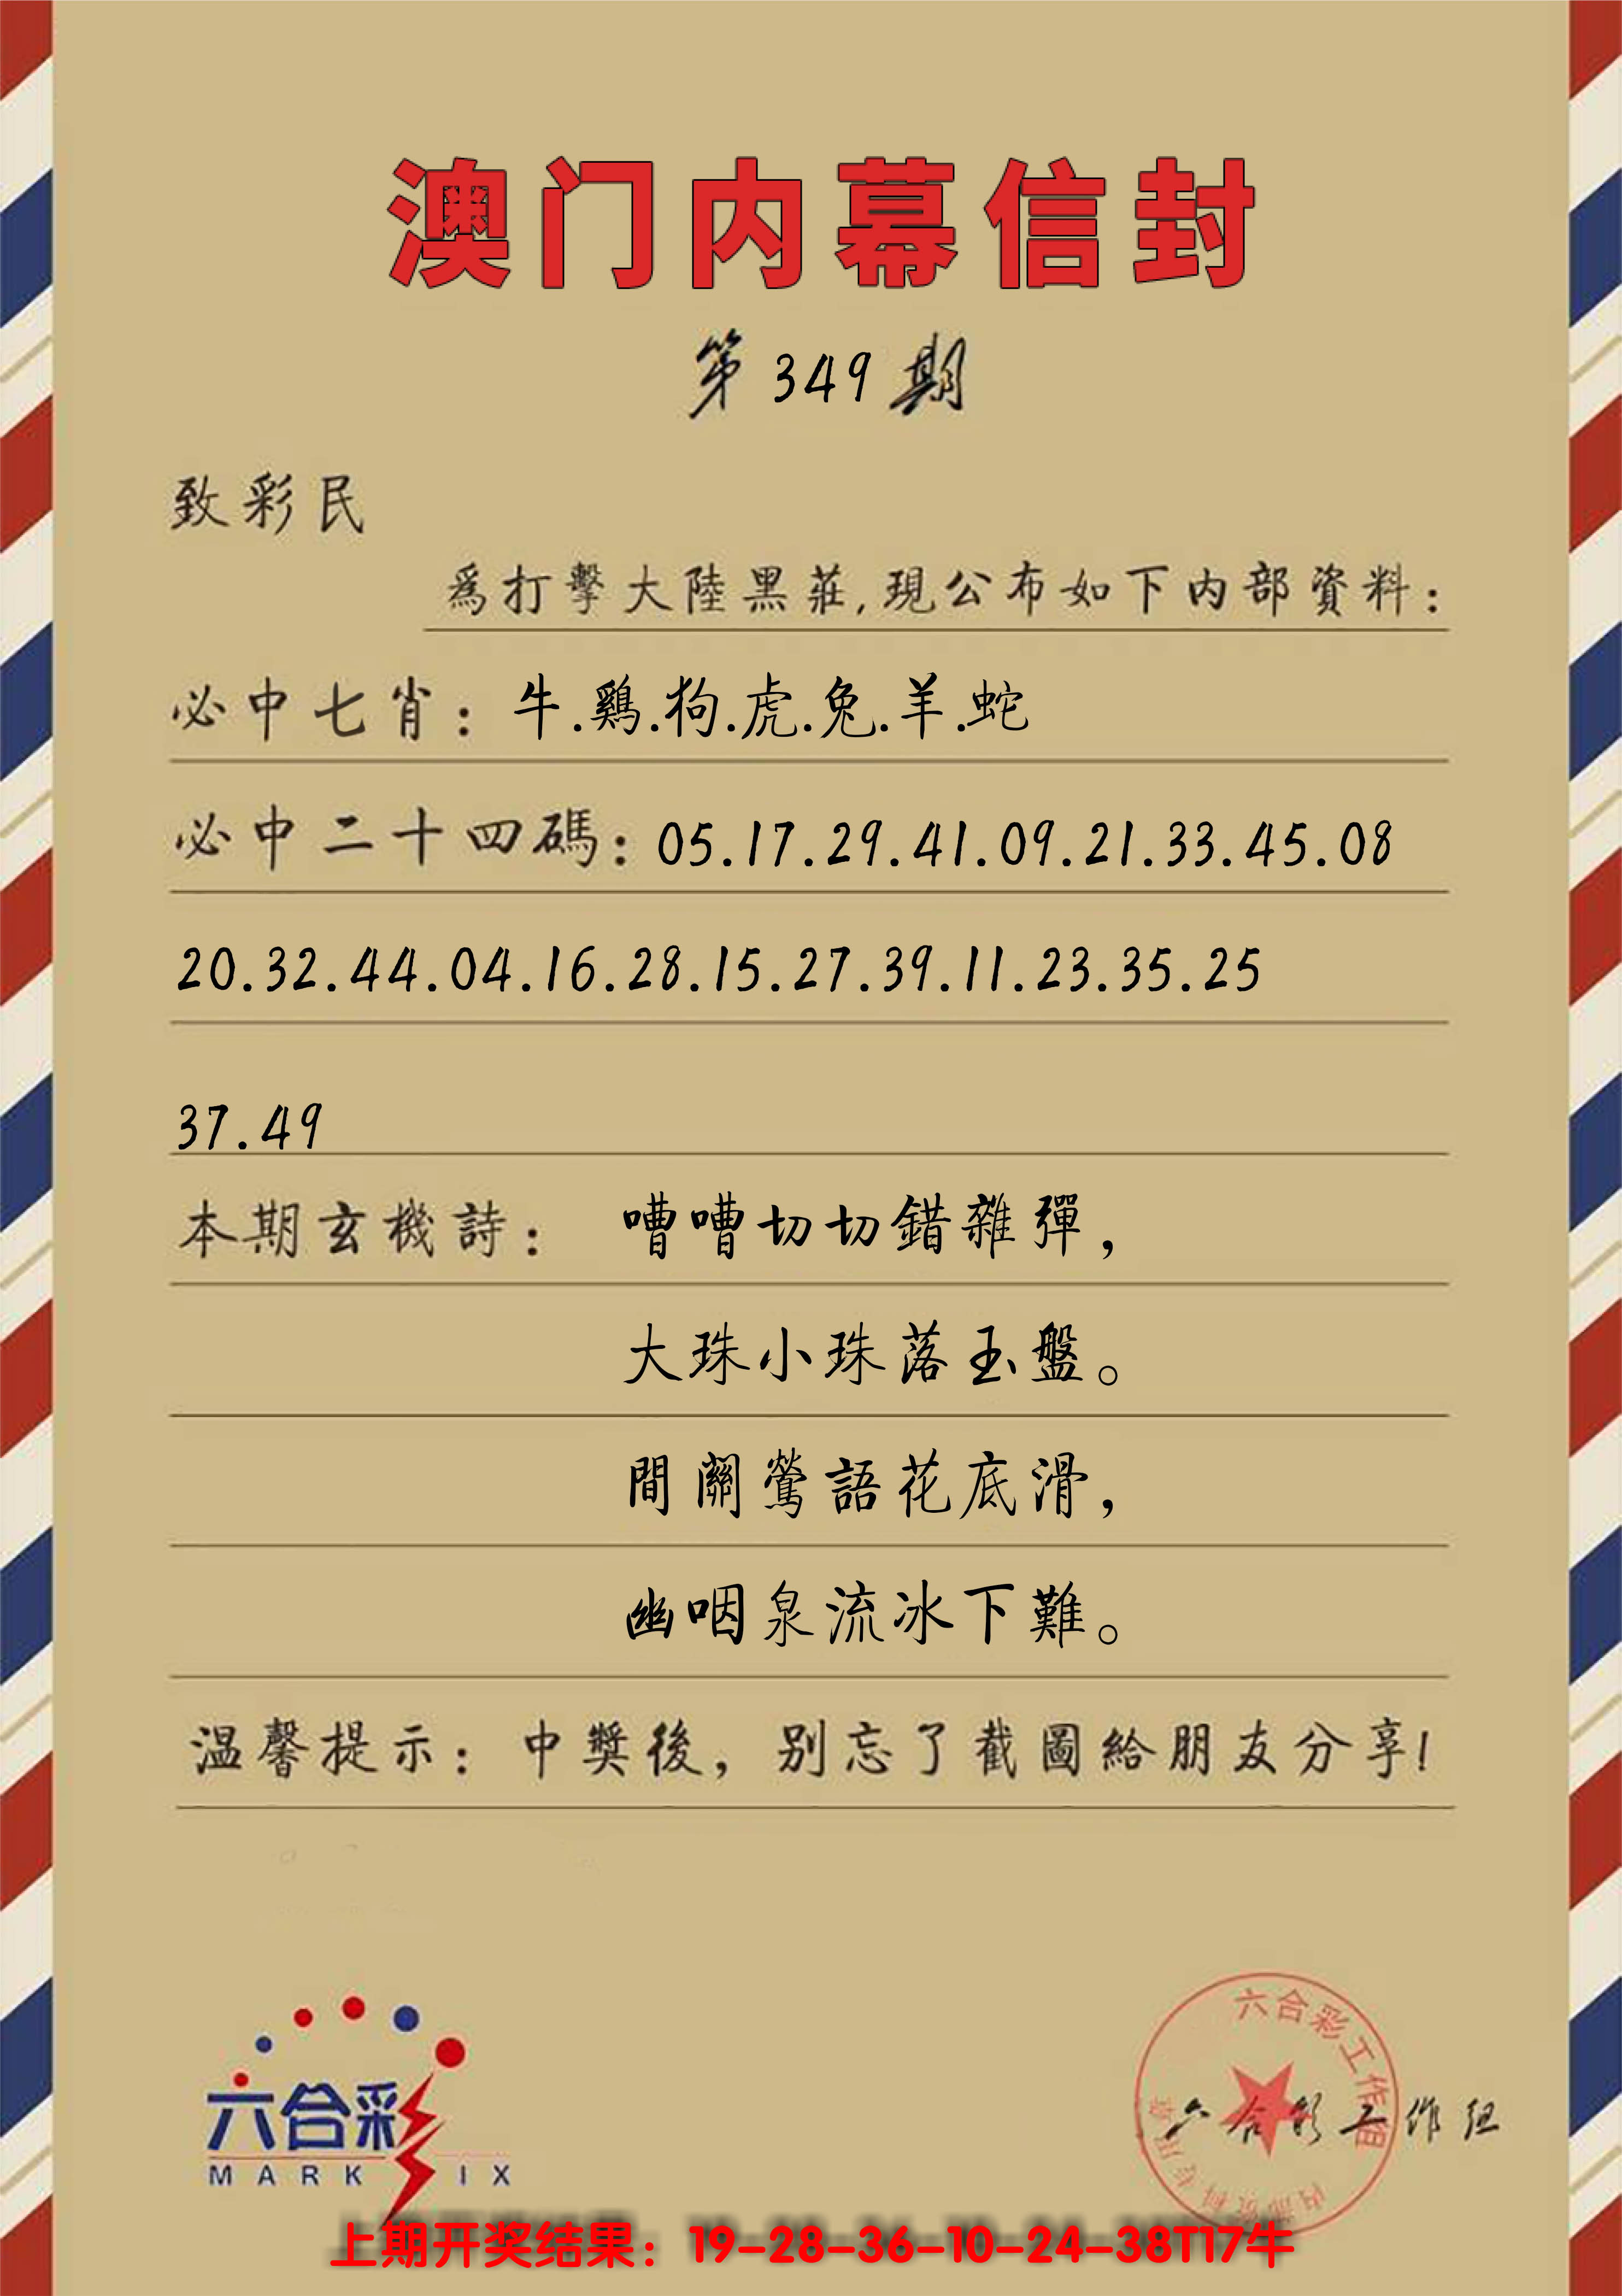 澳门内幕信封
第349期
致彩民
爲打擊大陸黑莊,現公布如下内部資料:
必中七肖: 牛.鷄.狗.虎.兔.羊.蛇
必中二十四碼: 05.17.29.41.09.21.33.45.08
20.32.44.04.16.28.15.27.39.11.23.35.25
37.49
本期玄機詩: 嘈嘈切切錯雜彈，
大珠小珠落玉盤。
間關鶯語花底滑，
幽咽泉流冰下難。
温馨提示: 中獎後，别忘了截圖給朋友分享!
六合彩
MARK IX
六合彩工作组
内部资料专用章
六合彩工作组
上期开奖结果：19-28-36-10-24-38T17牛